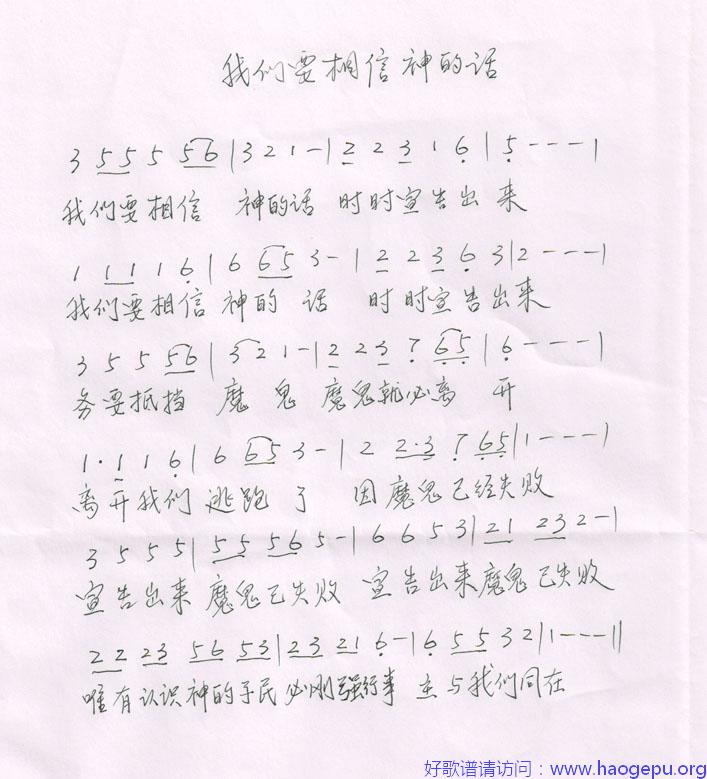 我们要相信神的话
3 5 5 5 5 6 | 3 2 1 - | 2 2 3 1 6 | 5 - - - |
我们要相信 神的话 时时宣告出来
1 1 1 1 6 | 6 6 5 3 - | 2 2 3 6 3 | 2 - - - |
我们要相信 神的 话 时时宣告出来
3 5 5 5 6 | 3 2 1 - | 2 2 3 7 6 5 | 6 - - - |
务要抵挡 魔鬼 魔鬼就必离 开
1 · 1 1 6 | 6 6 5 3 - | 2 2 · 3 7 6 5 | 1 - - - |
离开我们 逃跑了 因魔鬼已经失败
3 5 5 5 | 5 5 5 6 5 - | 6 6 5 3 | 2 1 2 3 2 - |
宣告出来 魔鬼已失败 宣告出来魔鬼已失败
2 2 2 3 5 6 5 3 | 2 3 2 1 6 - | 6 5 5 3 2 | 1 - - - ||
唯有认识神的子民必刚强行事 主与我们同在
好歌谱请访问：www.haogepu.org